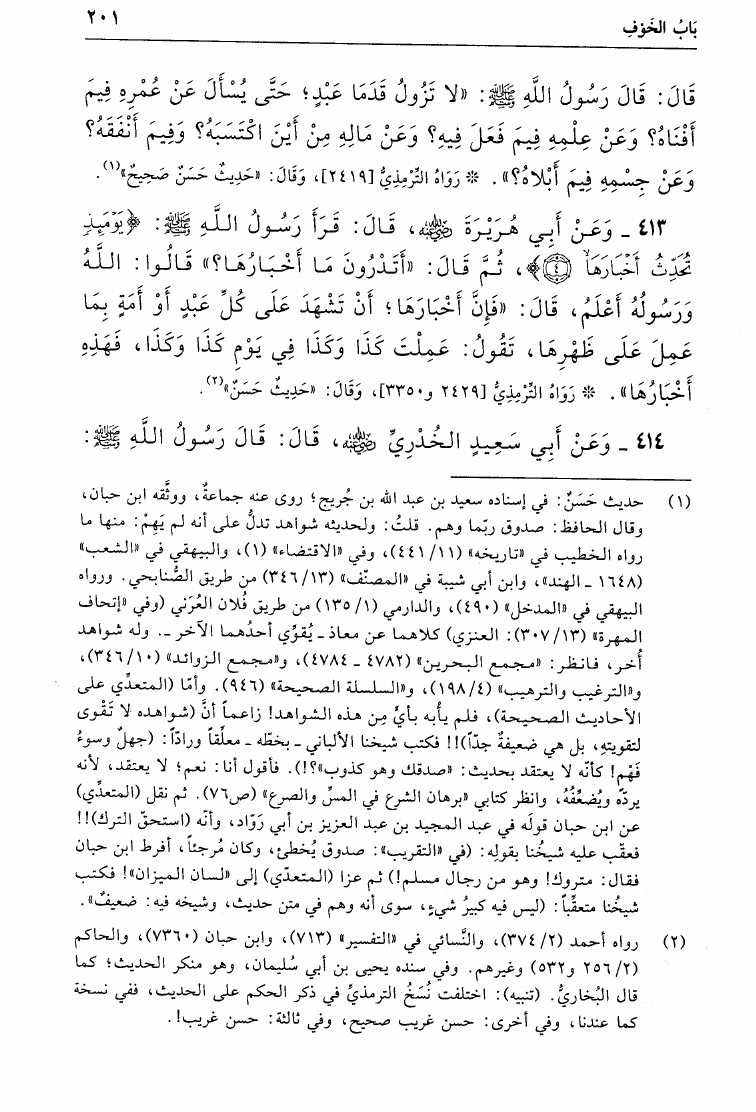 بَابُ الخَوْفِ ٢٠١
قَالَ: قَالَ رَسُولُ اللَّهِ ﷺ: «لا تَزُولُ قَدَمَا عَبْدٍ؛ حَتَّى يُسْأَلَ عَنْ عُمُرِهِ فِيمَ
أَفْنَاهُ؟ وَعَنْ عِلْمِهِ فِيمَ فَعَلَ فِيهِ؟ وَعَنْ مَالِهِ مِنْ أَيْنَ اكْتَسَبَهُ؟ وَفِيمَ أَنْفَقَهُ؟
وَعَنْ جِسْمِهِ فِيمَ أَبْلاهُ؟». * رَوَاهُ التِّرْمِذِيُّ [٢٤١٩]، وَقَالَ: «حَدِيثٌ حَسَنٌ صَحِيحٌ»(١).
٤١٣ ـ وَعَنْ أَبِي هُرَيْرَةَ رضي الله عنه، قَالَ: قَرَأَ رَسُولُ اللَّهِ ﷺ: ﴿يَوْمَئِذٍ
تُحَدِّثُ أَخْبَارَهَا ۝٤﴾، ثُمَّ قَالَ: «أَتَدْرُونَ مَا أَخْبَارُهَا؟» قَالُوا: اللَّهُ
وَرَسُولُهُ أَعْلَمُ، قَالَ: «فَإِنَّ أَخْبَارَهَا؛ أَنْ تَشْهَدَ عَلَى كُلِّ عَبْدٍ أَوْ أَمَةٍ بِمَا
عَمِلَ عَلَى ظَهْرِهَا، تَقُولُ: عَمِلْتَ كَذَا وَكَذَا فِي يَوْمِ كَذَا وَكَذَا، فَهَذِهِ
أَخْبَارُهَا». * رَوَاهُ التِّرْمِذِيُّ [٢٤٢٩ و٣٣٥٠]، وَقَالَ: «حَدِيثٌ حَسَنٌ»(٢).
٤١٤ ـ وَعَنْ أَبِي سَعِيدٍ الخُدْرِيِّ رضي الله عنه، قَالَ: قَالَ رَسُولُ اللَّهِ ﷺ:
(١) حديث حَسَنٌ: في إسناده سعيد بن عبد الله بن جُريج؛ روى عنه جماعةٌ، ووثَّقه ابن حبان،
وقال الحافظ: صدوق ربّما وهم. قلتُ: ولحديثه شواهد تدلُّ على أنه لم يَهِمْ: منها ما
رواه الخطيب في «تاريخه» (١١/ ٤٤١)، وفي «الاقتضاء» (١)، والبيهقي في «الشعب»
(١٦٤٨ ـ الهند)، وابن أبي شيبة في «المصنّف» (١٣/ ٣٤٦) من طريق الصُّنابحي. ورواه
البيهقي في «المدخل» (٤٩٠)، والدارمي (١/ ١٣٥) من طريق فُلان العُرَني (وفي «إتحاف
المهرة» (١٣/ ٣٠٧): العنزي) كلاهما عن معاذ ـ يُقوِّي أحدُهما الآخر ـ. وله شواهد
أُخر، فانظر: «مجمع البحرين» (٤٧٨٢ ـ ٤٧٨٤)، و«مجمع الزوائد» (١٠/ ٣٤٦)،
و«الترغيب والترهيب» (٤/ ١٩٨)، و«السلسلة الصحيحة» (٩٤٦). وأمّا (المتعدِّي على
الأحاديث الصحيحة)، فلم يأبه بأيٍّ مِن هذه الشواهد! زاعماً أنَّ (شواهده لا تَقْوى
لتقويتهِ، بل هي ضعيفةٌ جدّاً)!!! فكتب شيخنا الألباني ـ بخطّه ـ معلِّقاً ورادّاً: (جهلٌ وسوءُ
فَهْم! كأنّه لا يعتقد بحديث: «صدقك وهو كذوب»؟!). فأقول أنا: نعم؛ لا يعتقد، لأنه
يردّه ويُضعِّفُهُ، وانظر كتابي «برهان الشرع في المسِّ والصرع» (ص٧٦). ثم نقل (المتعدِّي)
عن ابن حبان قولَه في عبد المجيد بن عبد العزيز بن أبي رَوّاد، وأنّه (استحقّ الترك)!!
فعقّب عليه شيخُنا بقولِه: (في «التقريب»: صدوق يُخطئ، وكان مُرجئاً، أفرط ابن حبان
فقال: متروك! وهو من رجال مسلم!) ثم عزا (المتعدّي) إلى «لسان الميزان»! فكتب
شيخُنا متعقِّباً: (ليس فيه كبيرُ شيءٍ، سوى أنه وهم في متن حديث، وشيخه فيه: ضعيفٌ».
(٢) رواه أحمد (٢/ ٣٧٤)، والنَّسائي في «التفسير» (٧١٣)، وابن حبان (٧٣٦٠)، والحاكم
(٢/ ٢٥٦ و٥٣٢) وغيرهم. وفي سنده يحيى بن أبي سُليمان، وهو منكر الحديث؛ كما
قال البُخاريُّ. (تنبيه): اختلفت نُسَخُ الترمذيِّ في ذكر الحكم على الحديث، ففي نسخة
كما عندنا، وفي أخرى: حسن غريب صحيح، وفي ثالثة: حسن غريب!.